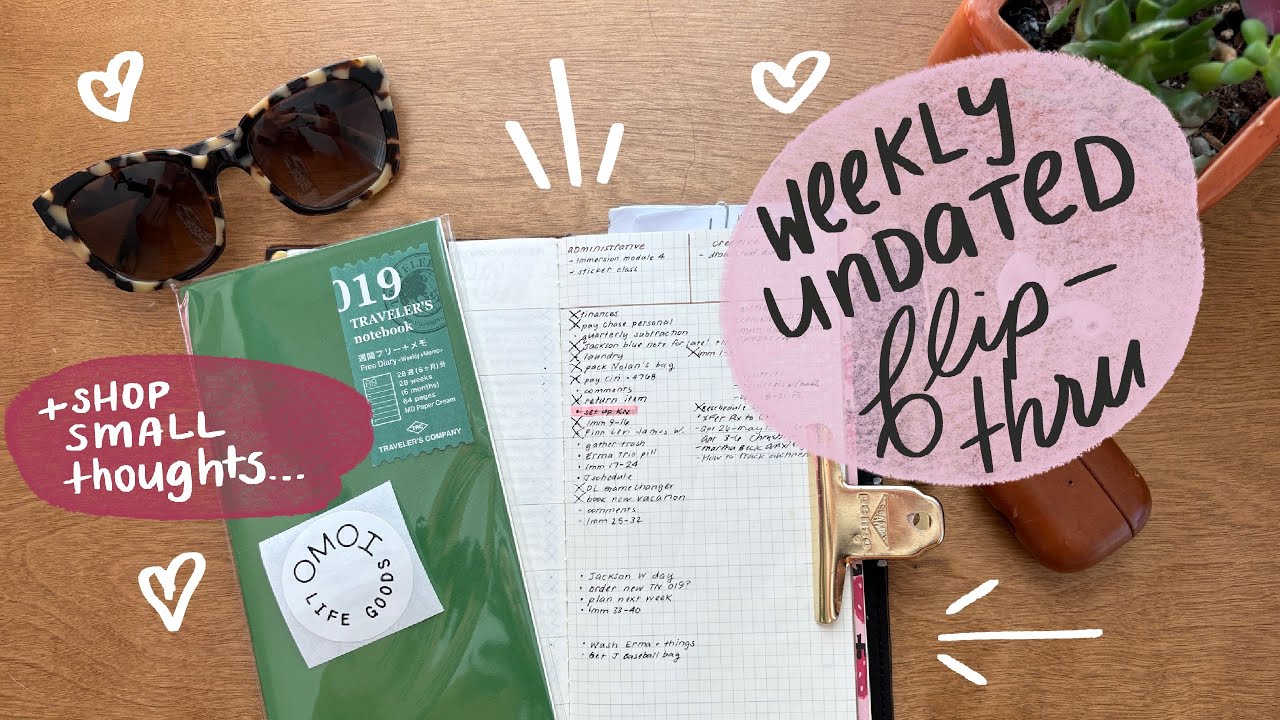 weekly
undated
flip-
thru
+ SHOP
SMALL
thoughts...
019
TRAVELER'S
notebook
週間フリー+メモ
Free Diary <Weekly+Memo>
28週(6ヶ月)分
28 weeks
(6 months)
64 pages
MD Paper Cream
TRAVELER'S COMPANY
OMOI
LIFE GOODS
administrative
- immersion module 4
- sticker class
finances
pay chase personal
quarterly subtraction
"Jackson blue note for late"
laundry
pack Nolan's bag
pay citi - 4768
comments
return item
set up KN
Imm 9-16
Finn Lori James W.
gather trash
Erma trio pill
Imm 17-24
J schedule
DL gamechanger
book nov vacation
comments
Imm 25-32
Jackson W day
order new TN 019?
plan next week
Imm 33-40
Wash Erma + things
Get J baseball bag